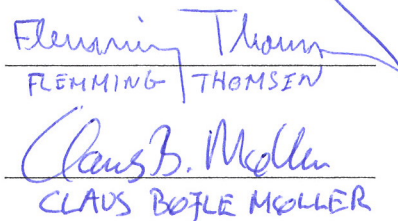 Flemming Thomsen
FLEMMING THOMSEN
Claus B. Møller
CLAUS BOJLE MØLLER